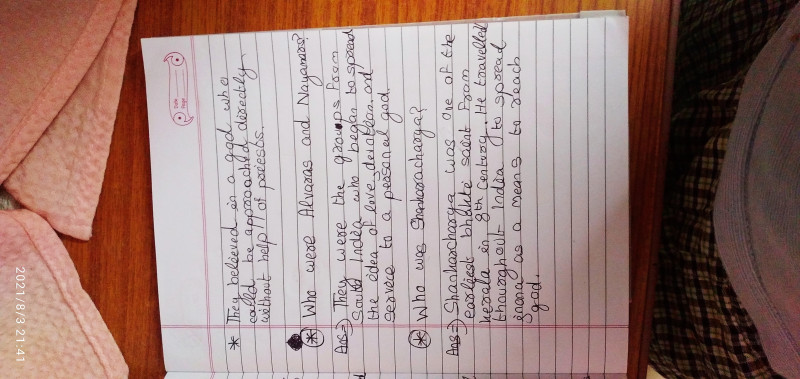 Date
Page
* They believed in a god who
could be approached directly
without help of priests.
* Who were Alvaras and Nayanars?
Ans=) They were the groups from
South India who began to spread
the idea of love, devotion and
service to a personal god.
* Who was Shankaracharya?
Ans=) Shankarcharya was one of the
earliest bhakti saint from
kerala in 8th century. He travelled
throughout India to spread
gnana as a means to reach
god.
2021/8/3 21:41